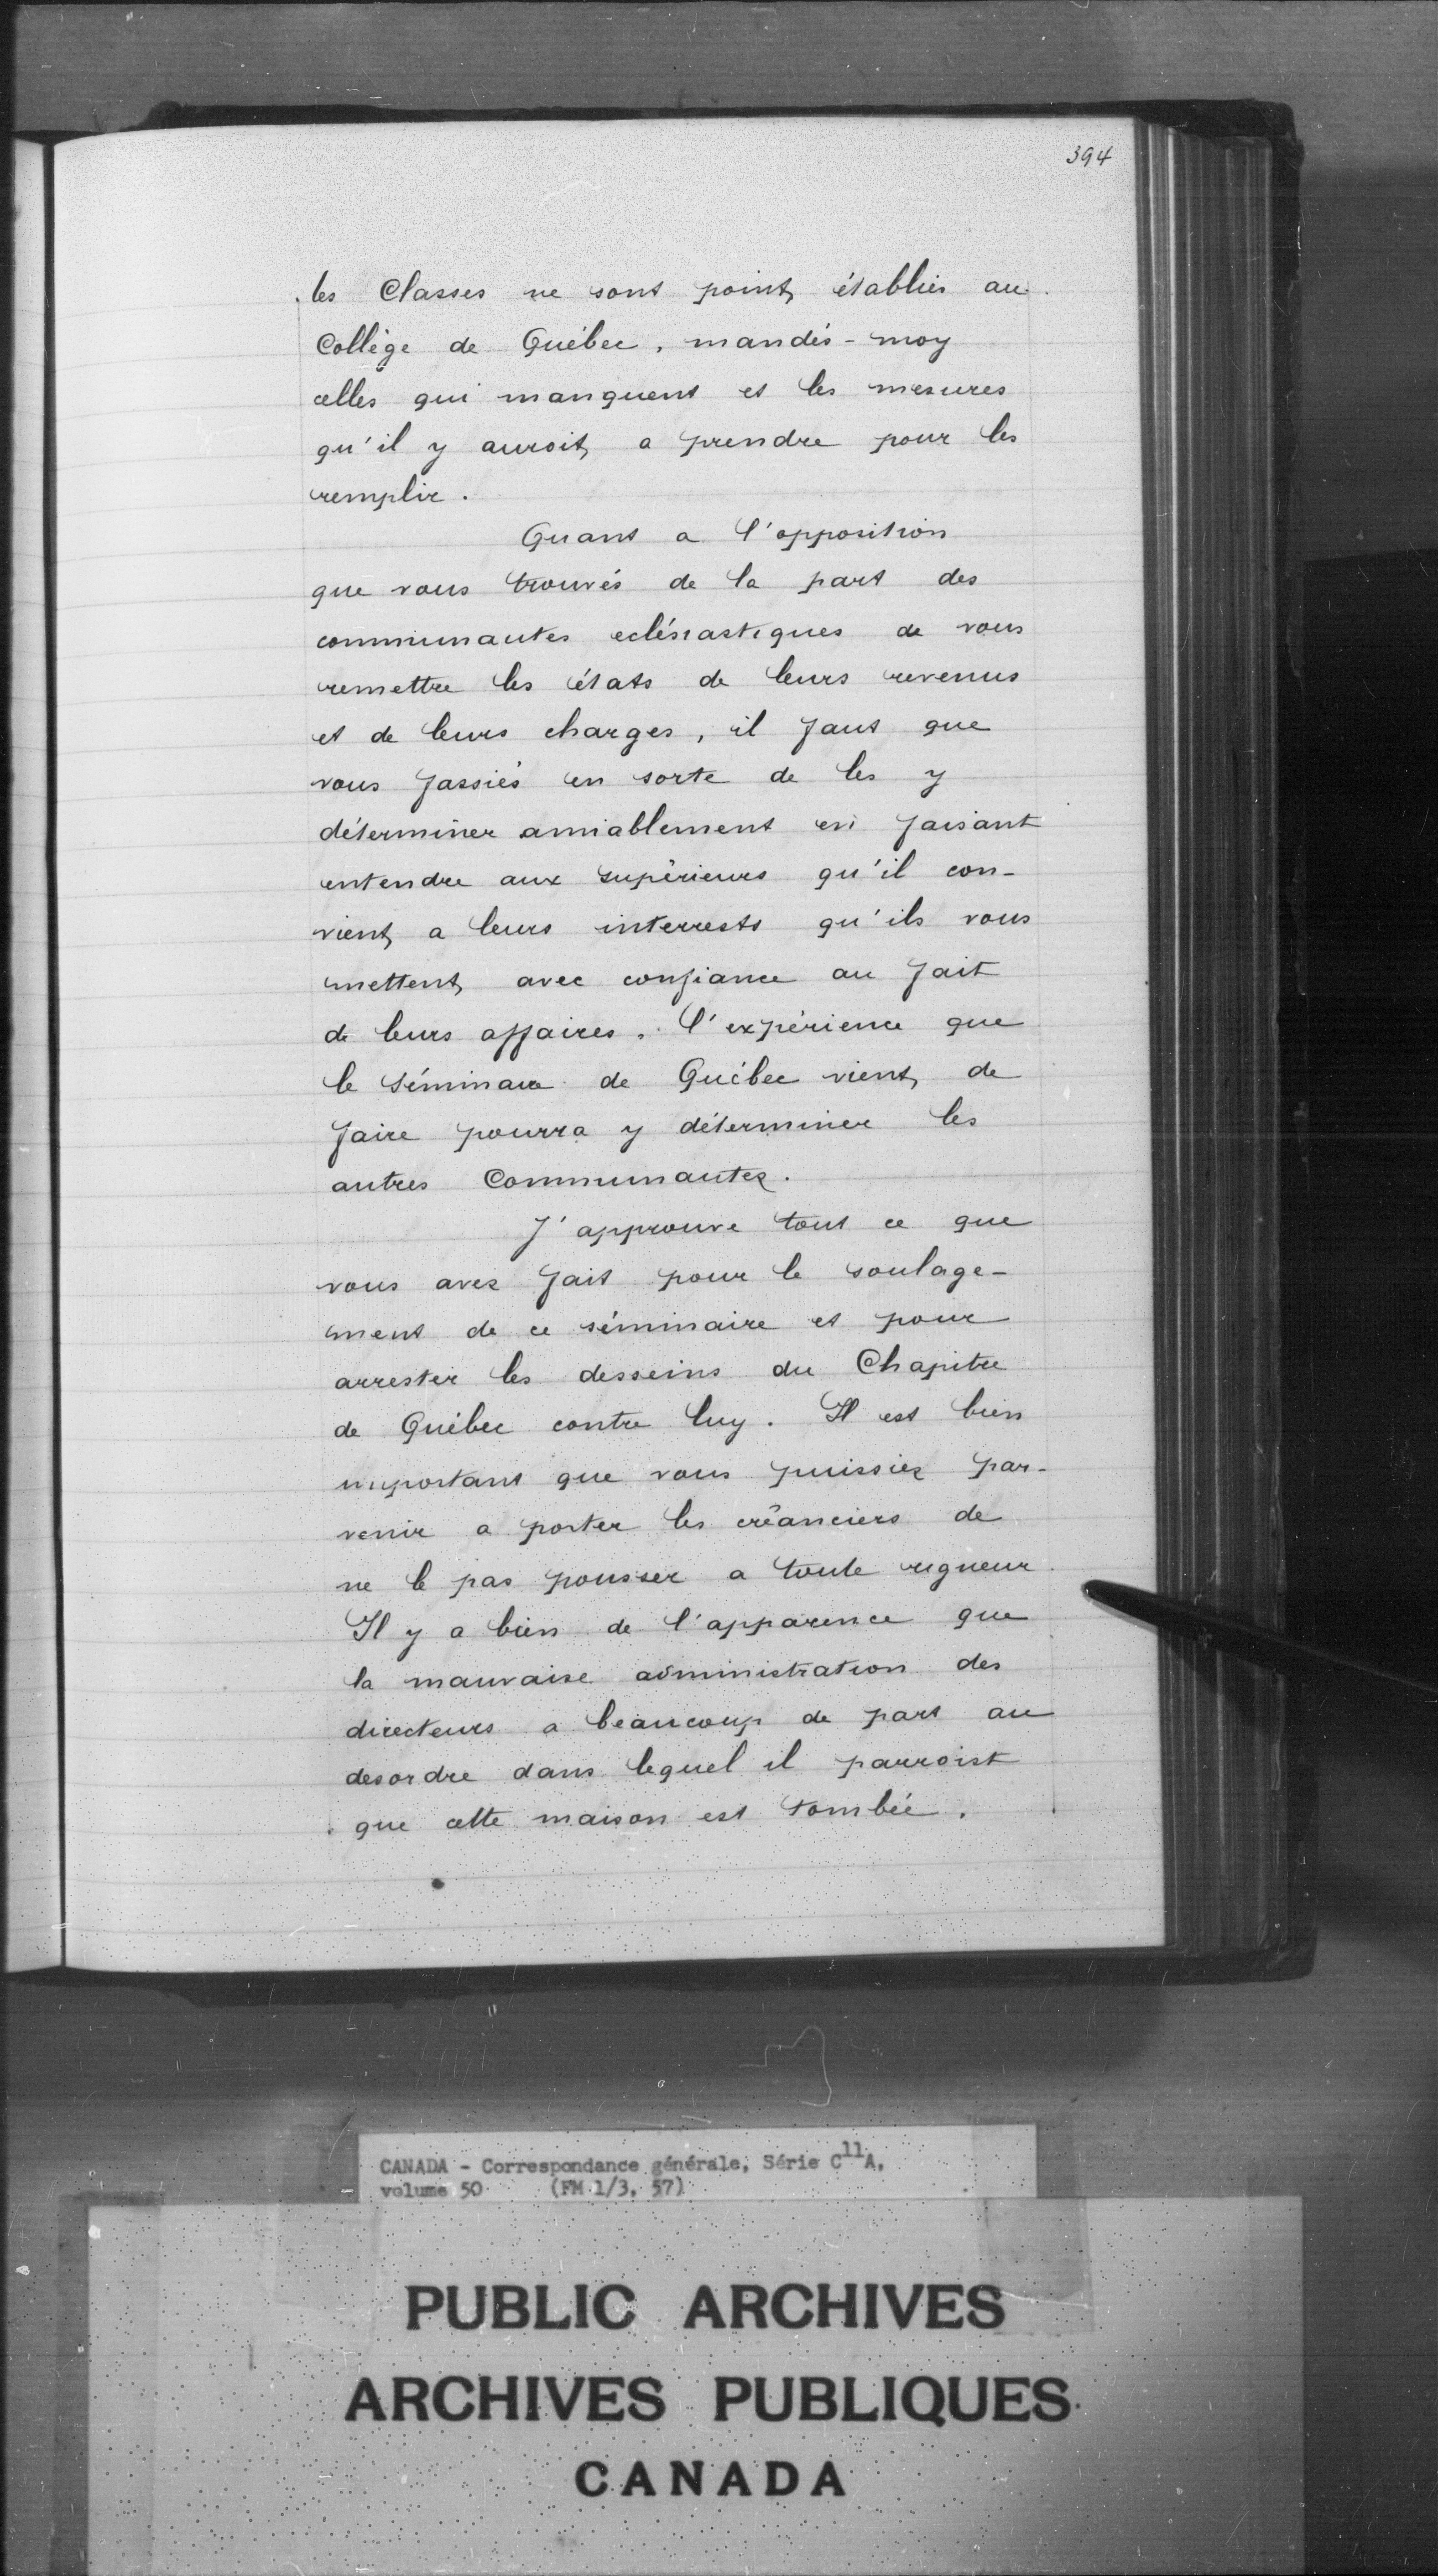 394
les Classes ne sont point établies au
Collège de Québec, mandés-moy
celles qui manquent et les mesures
qu'il y auroit a prendre pour les
remplir.
Quant a l'opposition
que vous trouvés de la part des
communautes eclésiastiques de vous
remettre les états de leurs revenus
et de leurs charges, il faut que
vous fassiés en sorte de les y
déterminer amiablement en faisant
entendre aux supérieurs qu'il con-
vient a leurs interrests qu'ils vous
mettent avec confiance au fait
de leurs affaires. l'expérience que
le séminaire de Québec vient de
faire pourra y déterminer les
autres Communautez.
J'approuve tout ce que
vous avez fait pour le soulage-
ment de ce séminaire et pour
arrester les desseins du Chapitre
de Québec contre luy. Il est bien
important que vous puissiez par-
venir a porter les créanciers de
ne le pas pousser a toute rigueur.
Il y a bien de l'apparence que
la mauvaise administration des
directeurs a beaucoup de part au
desordre dans lequel il parroist
que cette maison est tombée.
CANADA - Correspondance générale, Série C11A,
volume 50 (FM 1/3, 57)
PUBLIC ARCHIVES
ARCHIVES PUBLIQUES
CANADA